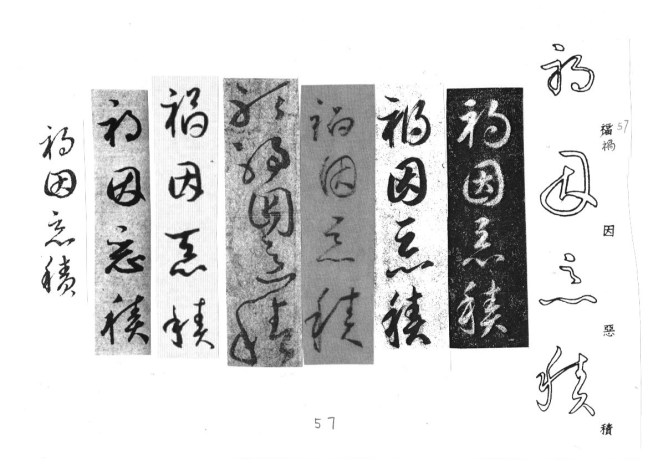 57
禍因惡積
禍因惡積
禍因惡積
禍因惡積
禍因惡積
聽禍因惡積
禍因惡積
禍因惡積
禍因惡積
57